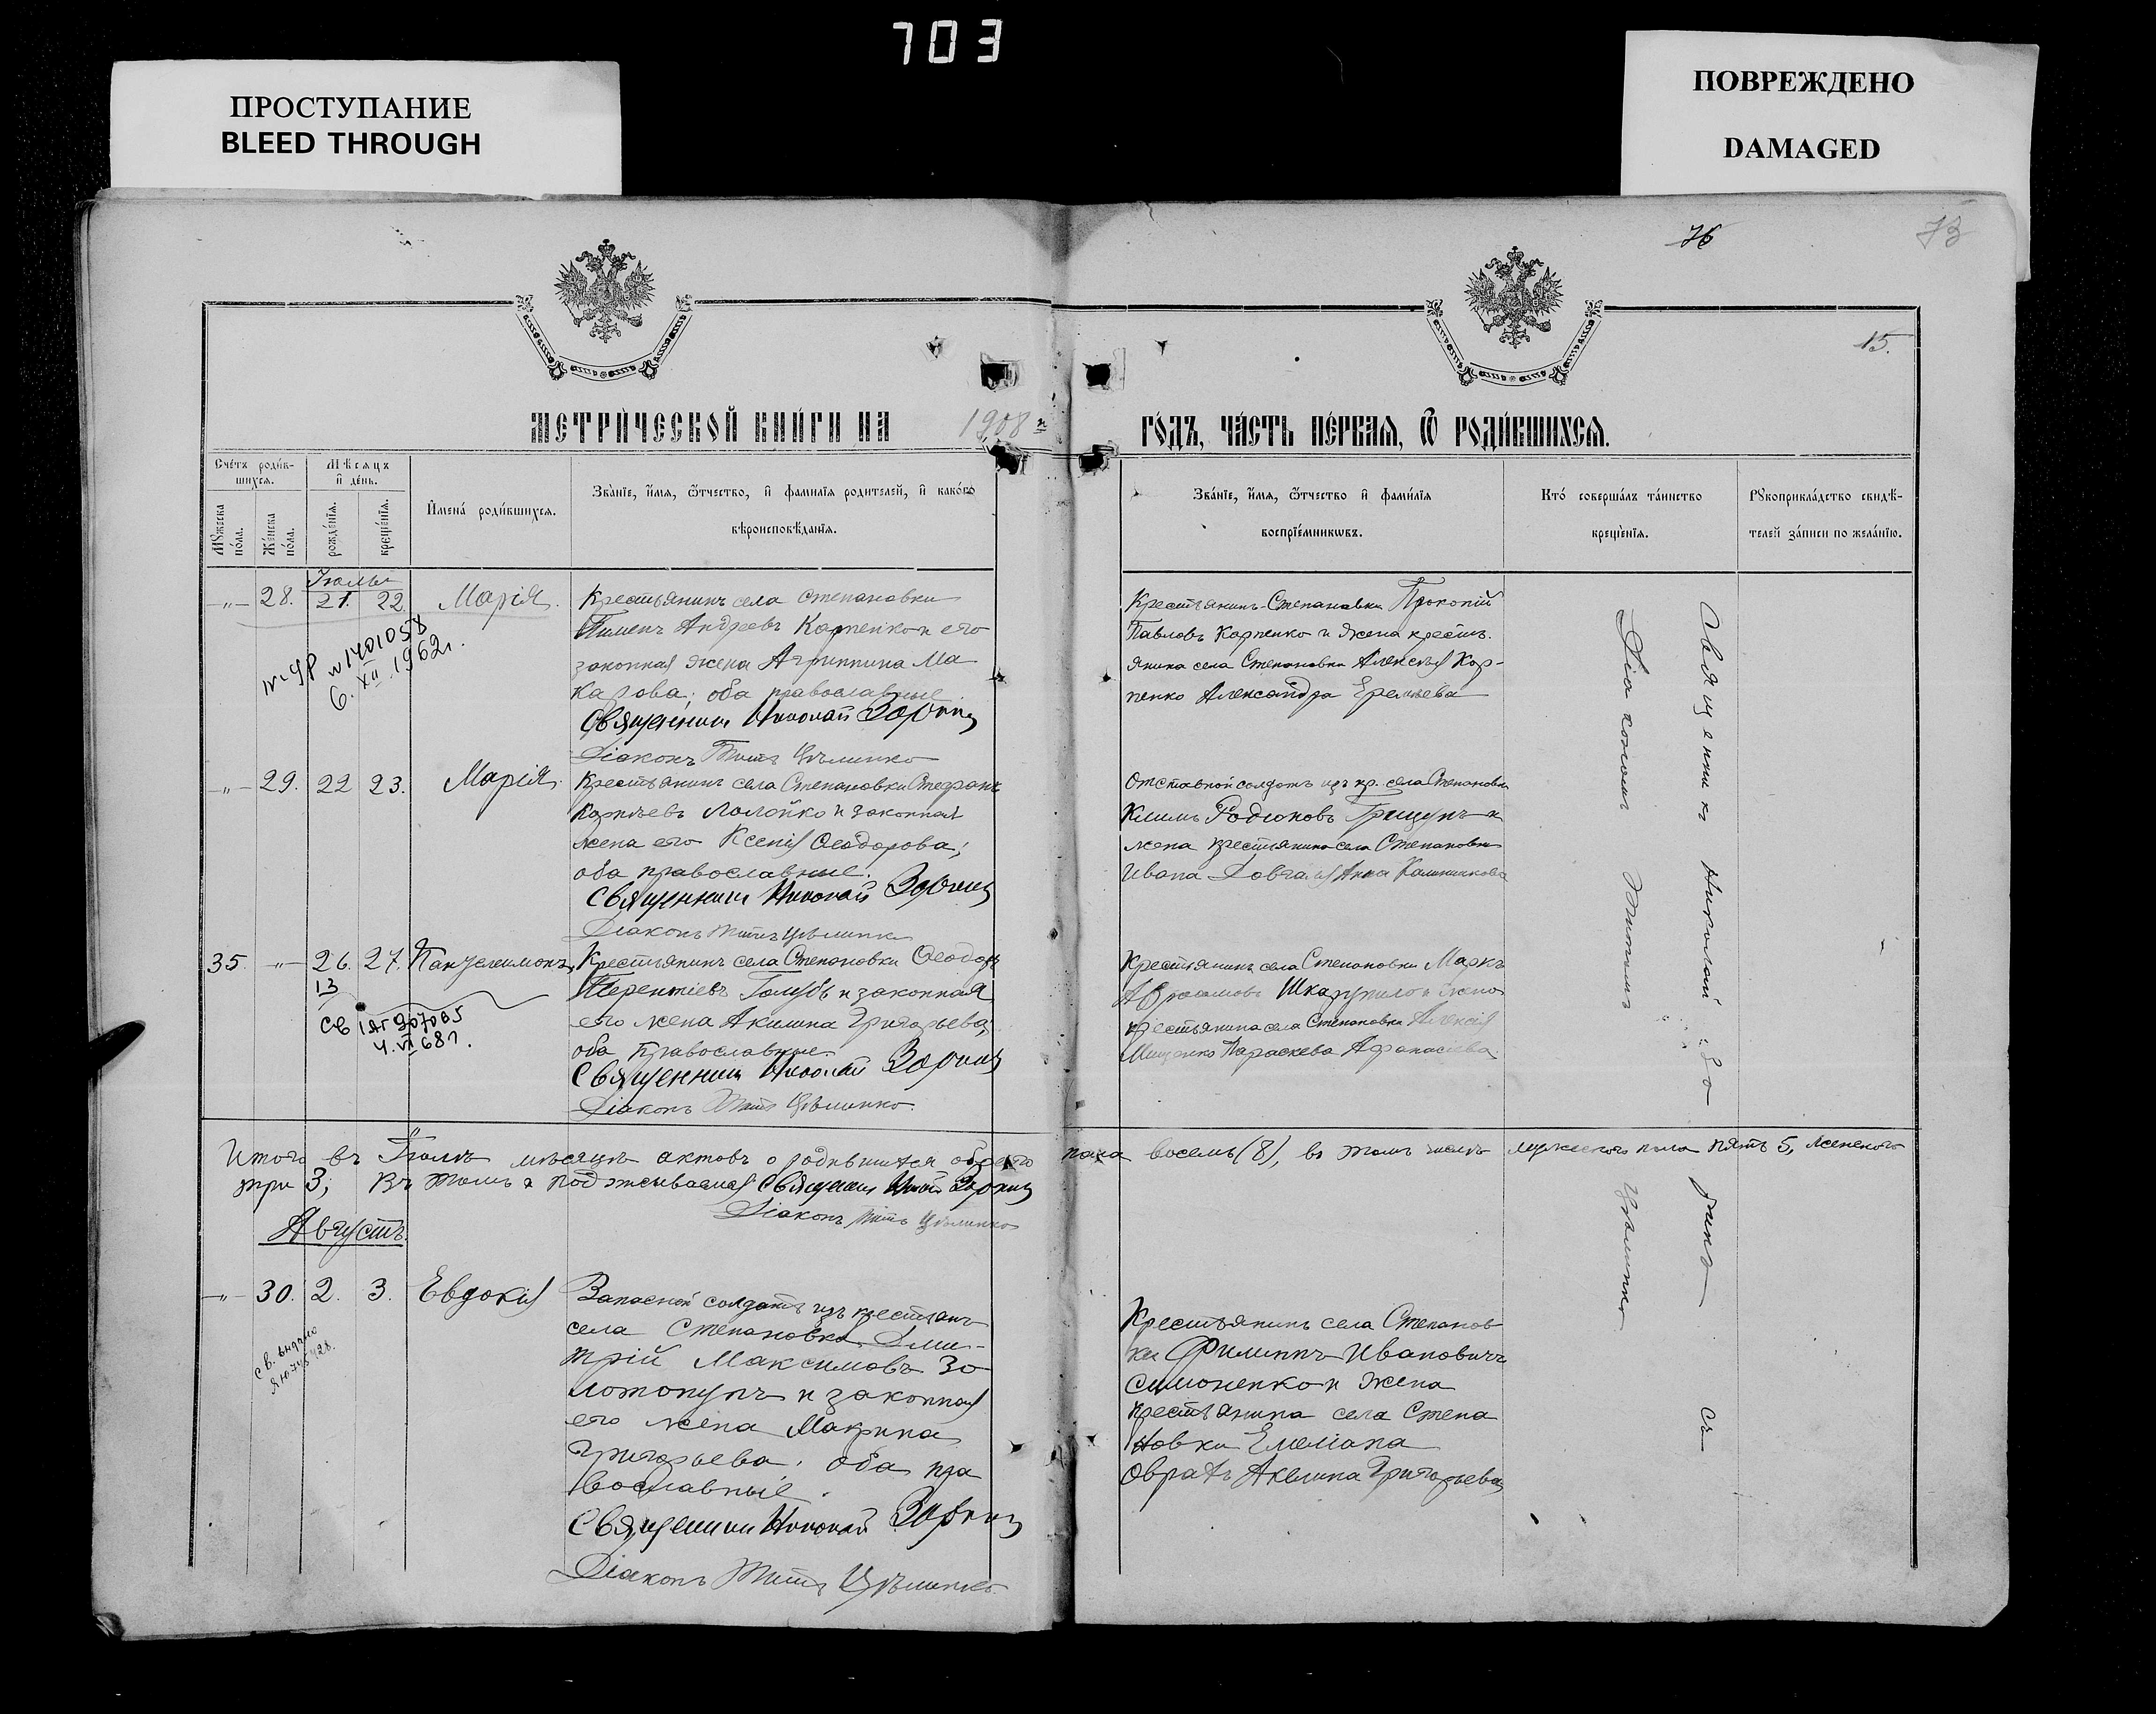 703
ПРОСТУПАНИЕ
BLEED THROUGH
ПОВРЕЖДЕНО
DAMAGED
76
73
15.
МЕТРИ́ЧЕСКОЙ КНИ́ГИ НА 1908 ГО́ДЪ, ЧА́СТЬ ПЕ́РВАЯ, Ѿ РОДИ́ВШИХСЯ.
Счетъ роди́вшихся.
Мѣсяцъ и день.
Мужеска пола.
Женска пола.
рожденїя.
крещенїя.
Имена́ роди́вшихся.
Званїе, имя, ѻтчество, и фамилїя родителей, и какого
вѣроисповѣданїя.
Званїе, имя, ѻтчество и фамилїя
воспрїемникѡвъ.
Кто совершалъ таинство
крещенїя.
Рукоприкладство свидѣ-
телей записи по желанїю.
Іюль
-"- 28. 21. 22. Марія.
Крестьянинъ села Степановки
Пименъ Андреевъ Карпенко и его
законная жена Агриппина Ма
карова; оба православные.
Священникъ Николай Зоринъ
Діаконъ Титъ Цѣлинко
Крестьянинъ Степановки Прокопій
Павловъ Карпенко и жена крестъ.
янина села Степановки Алексѣя Кар-
пенко Александра Еремѣева
6. XII. 1962г.
-"- 29. 22 23. Марія.
Крестьянинъ села Степановки Стефанъ
законная
жена его Ксенія Ѳеодорова;
оба православные.
Священникъ Николай Зоринъ
Діаконъ Титъ Цѣлинко
Отставной солдатъ изъ кр. села Степановки
Климъ Родіоновъ Грицунъ и
жена крестьянина села Степановки
Ивана Довгаля Анна
35. -"- 26. 27. Пантелеимонъ
Крестьянинъ села Степановки Ѳеодоръ
Терентіевъ Голубъ и законная
его жена Акилина Григорьева;
оба православные.
Священникъ Николай Зоринъ
Діаконъ Титъ Цѣлинко.
Крестьянинъ села Степановки Маркъ
Авраамовъ Шкарупило и жена
крестьянина села Степановки Алексія
Мищенко Параскева Афанасіева
13
907085
4. VI 68г.
Итого въ Іюлѣ мѣсяцѣ актовъ о родившихся обоего пола восемь (8), въ томъ числѣ мужескаго пола пять 5, женскаго
три 3; Въ томъ и подписываемся Священникъ Ник. Зоринъ
Діаконъ Титъ Цѣлинко
Августъ.
-"- 30. 2. 3. Евдокія
Запасной солдатъ изъ крестьянъ
села Степановки Дми-
трій Максимовъ Зо-
лотопупъ и законная
его жена Макрина
Григорьева; оба пра
вославные.
Священникъ Николай Зоринъ
Діаконъ Титъ Цѣлинко.
Крестьянинъ села Степанов
ки Филиппъ Ивановичъ
Симоненко и жена
крестьянина села Степа
новки Емеліана
Оврахъ Акилина Григорьева
св. выдано
Священникъ Николай Зоринъ съ
Діакономъ Титомъ Цѣлинко